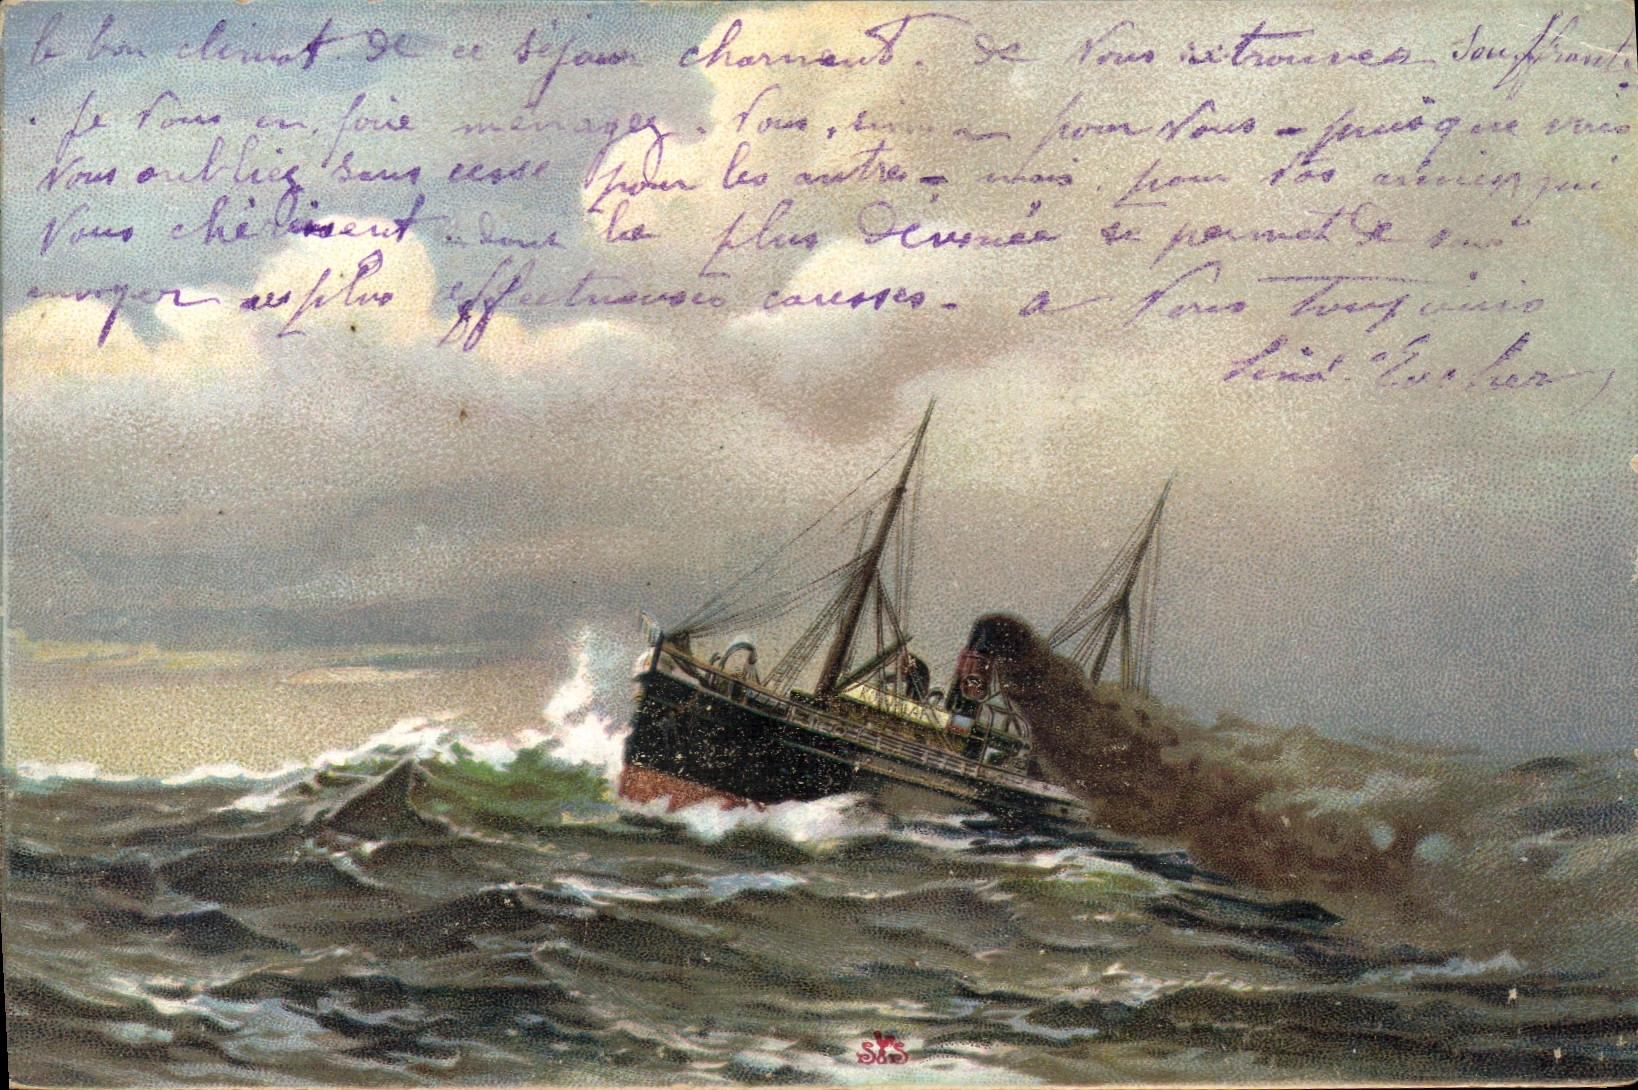 le bon climat. de ce séjour charmant. de vous retrouver souffrante
. Je vous en prie ménagez. vous, pour vous - puisque vous
vous oubliez sans cesse pour les autres - mais. pour vos amies qui
vous chérissent. dont la plus dévouée se permet de vous
envoyer ses plus affectueuses caresses - a vous toujours
S&S